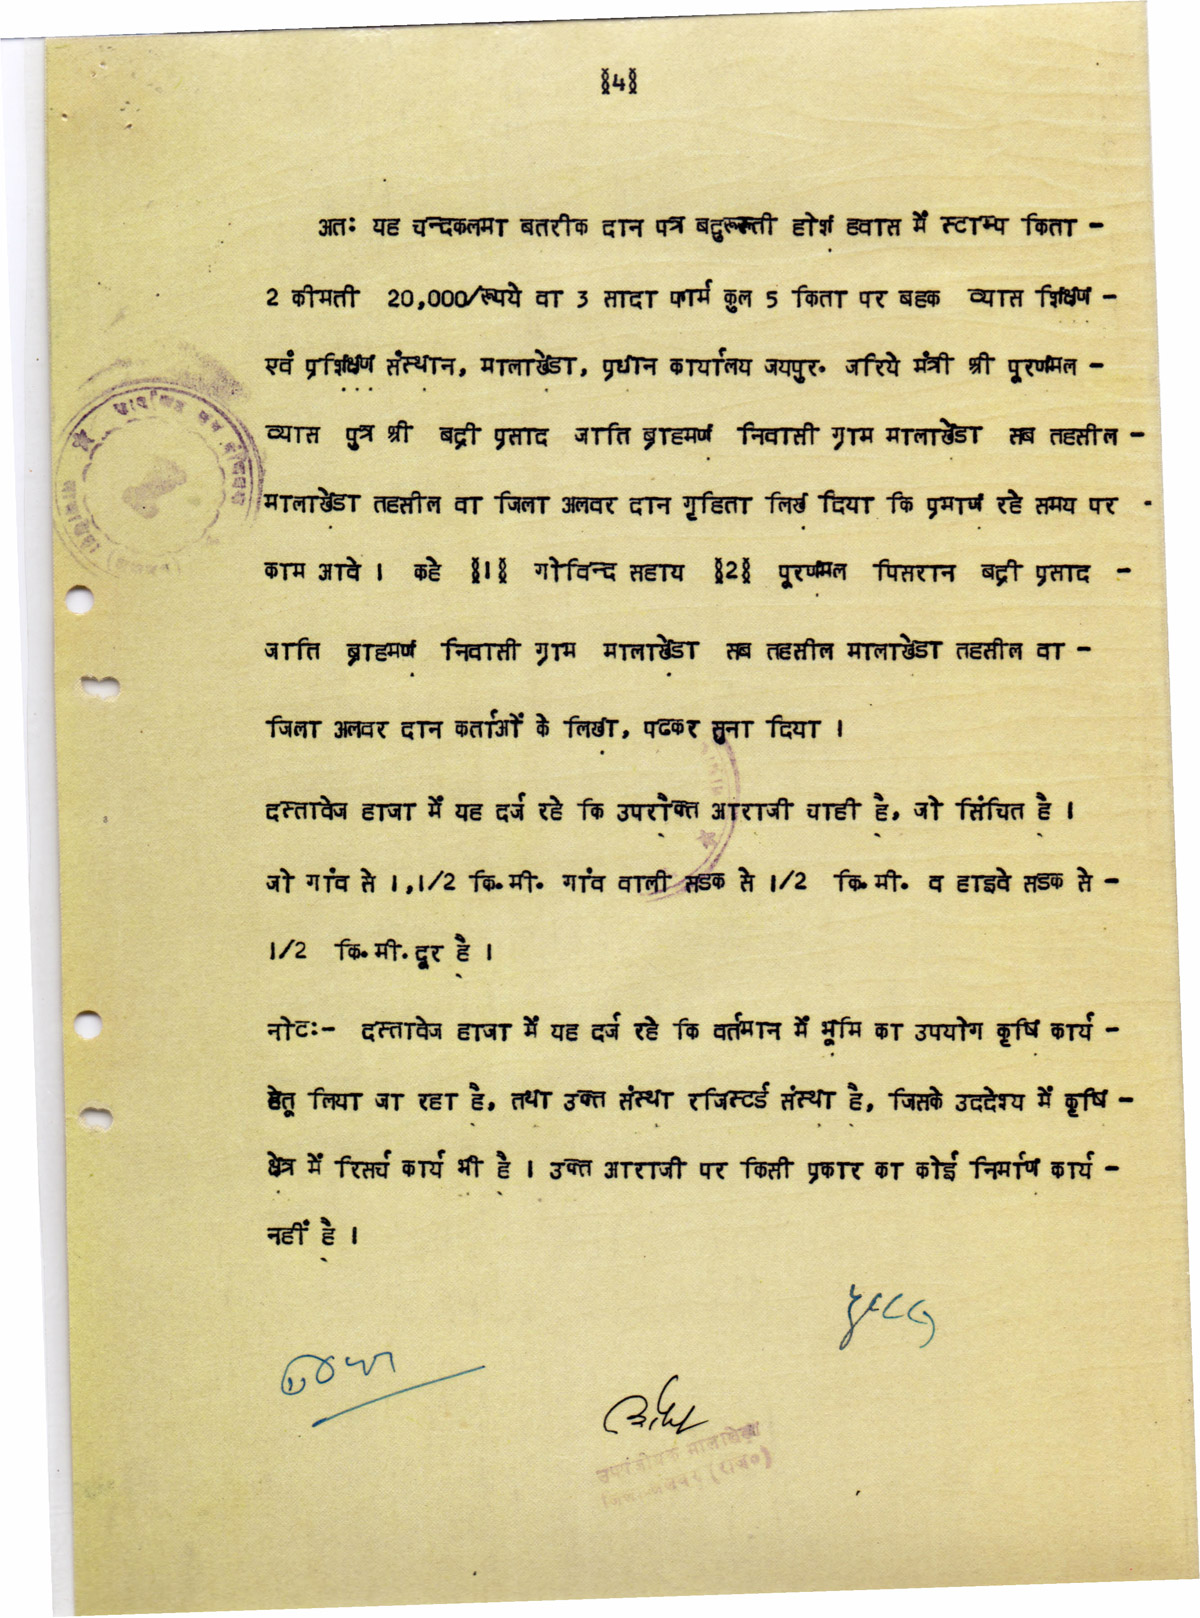 §4§
अतः यह चन्दकलमा बतरीक दान पत्र बदुरूस्ती होश हवास में स्टाम्प किता -
2 कीमती 20,000/रूपये वा 3 सादा फार्म कुल 5 किता पर बहक व्यास शिक्षण -
एवं प्रशिक्षण संस्थान, मालाखेडा, प्रधान कार्यालय जयपुर. जरिये मंत्री श्री पूरणमल -
व्यास पुत्र श्री बद्री प्रसाद जाति ब्राहमण निवासी ग्राम मालाखेडा सब तहसील -
मालाखेडा तहसील वा जिला अलवर दान गृहिता लिख दिया कि प्रमाण रहे समय पर -
काम आवे । कहे §1§ गोविन्द सहाय §2§ पूरणमल पिसरान बद्री प्रसाद -
जाति ब्राहमण निवासी ग्राम मालाखेडा सब तहसील मालाखेडा तहसील वा -
जिला अलवर दान कर्ताओं के लिखा, पढकर सुना दिया ।
दस्तावेज हाजा में यह दर्ज रहे कि उपरोक्त आराजी चाही है, जो सिंचित है ।
जो गांव से 1,1/2 कि.मी. गांव वाली सडक से 1/2 कि.मी. व हाइवे सडक से -
1/2 कि.मी. दूर है ।
नोटः- दस्तावेज हाजा में यह दर्ज रहे कि वर्तमान में भूमि का उपयोग कृषि कार्य -
हेतू लिया जा रहा है, तथा उक्त संस्था रजिस्टर्ड संस्था है, जिसके उददेश्य में कृषि -
क्षेत्र में रिसर्च कार्य भी है । उक्त आराजी पर किसी प्रकार का कोई निर्माण कार्य -
नहीं है ।
उपपंजीयक मालाखेडा
जिला-अलवर (राज०)